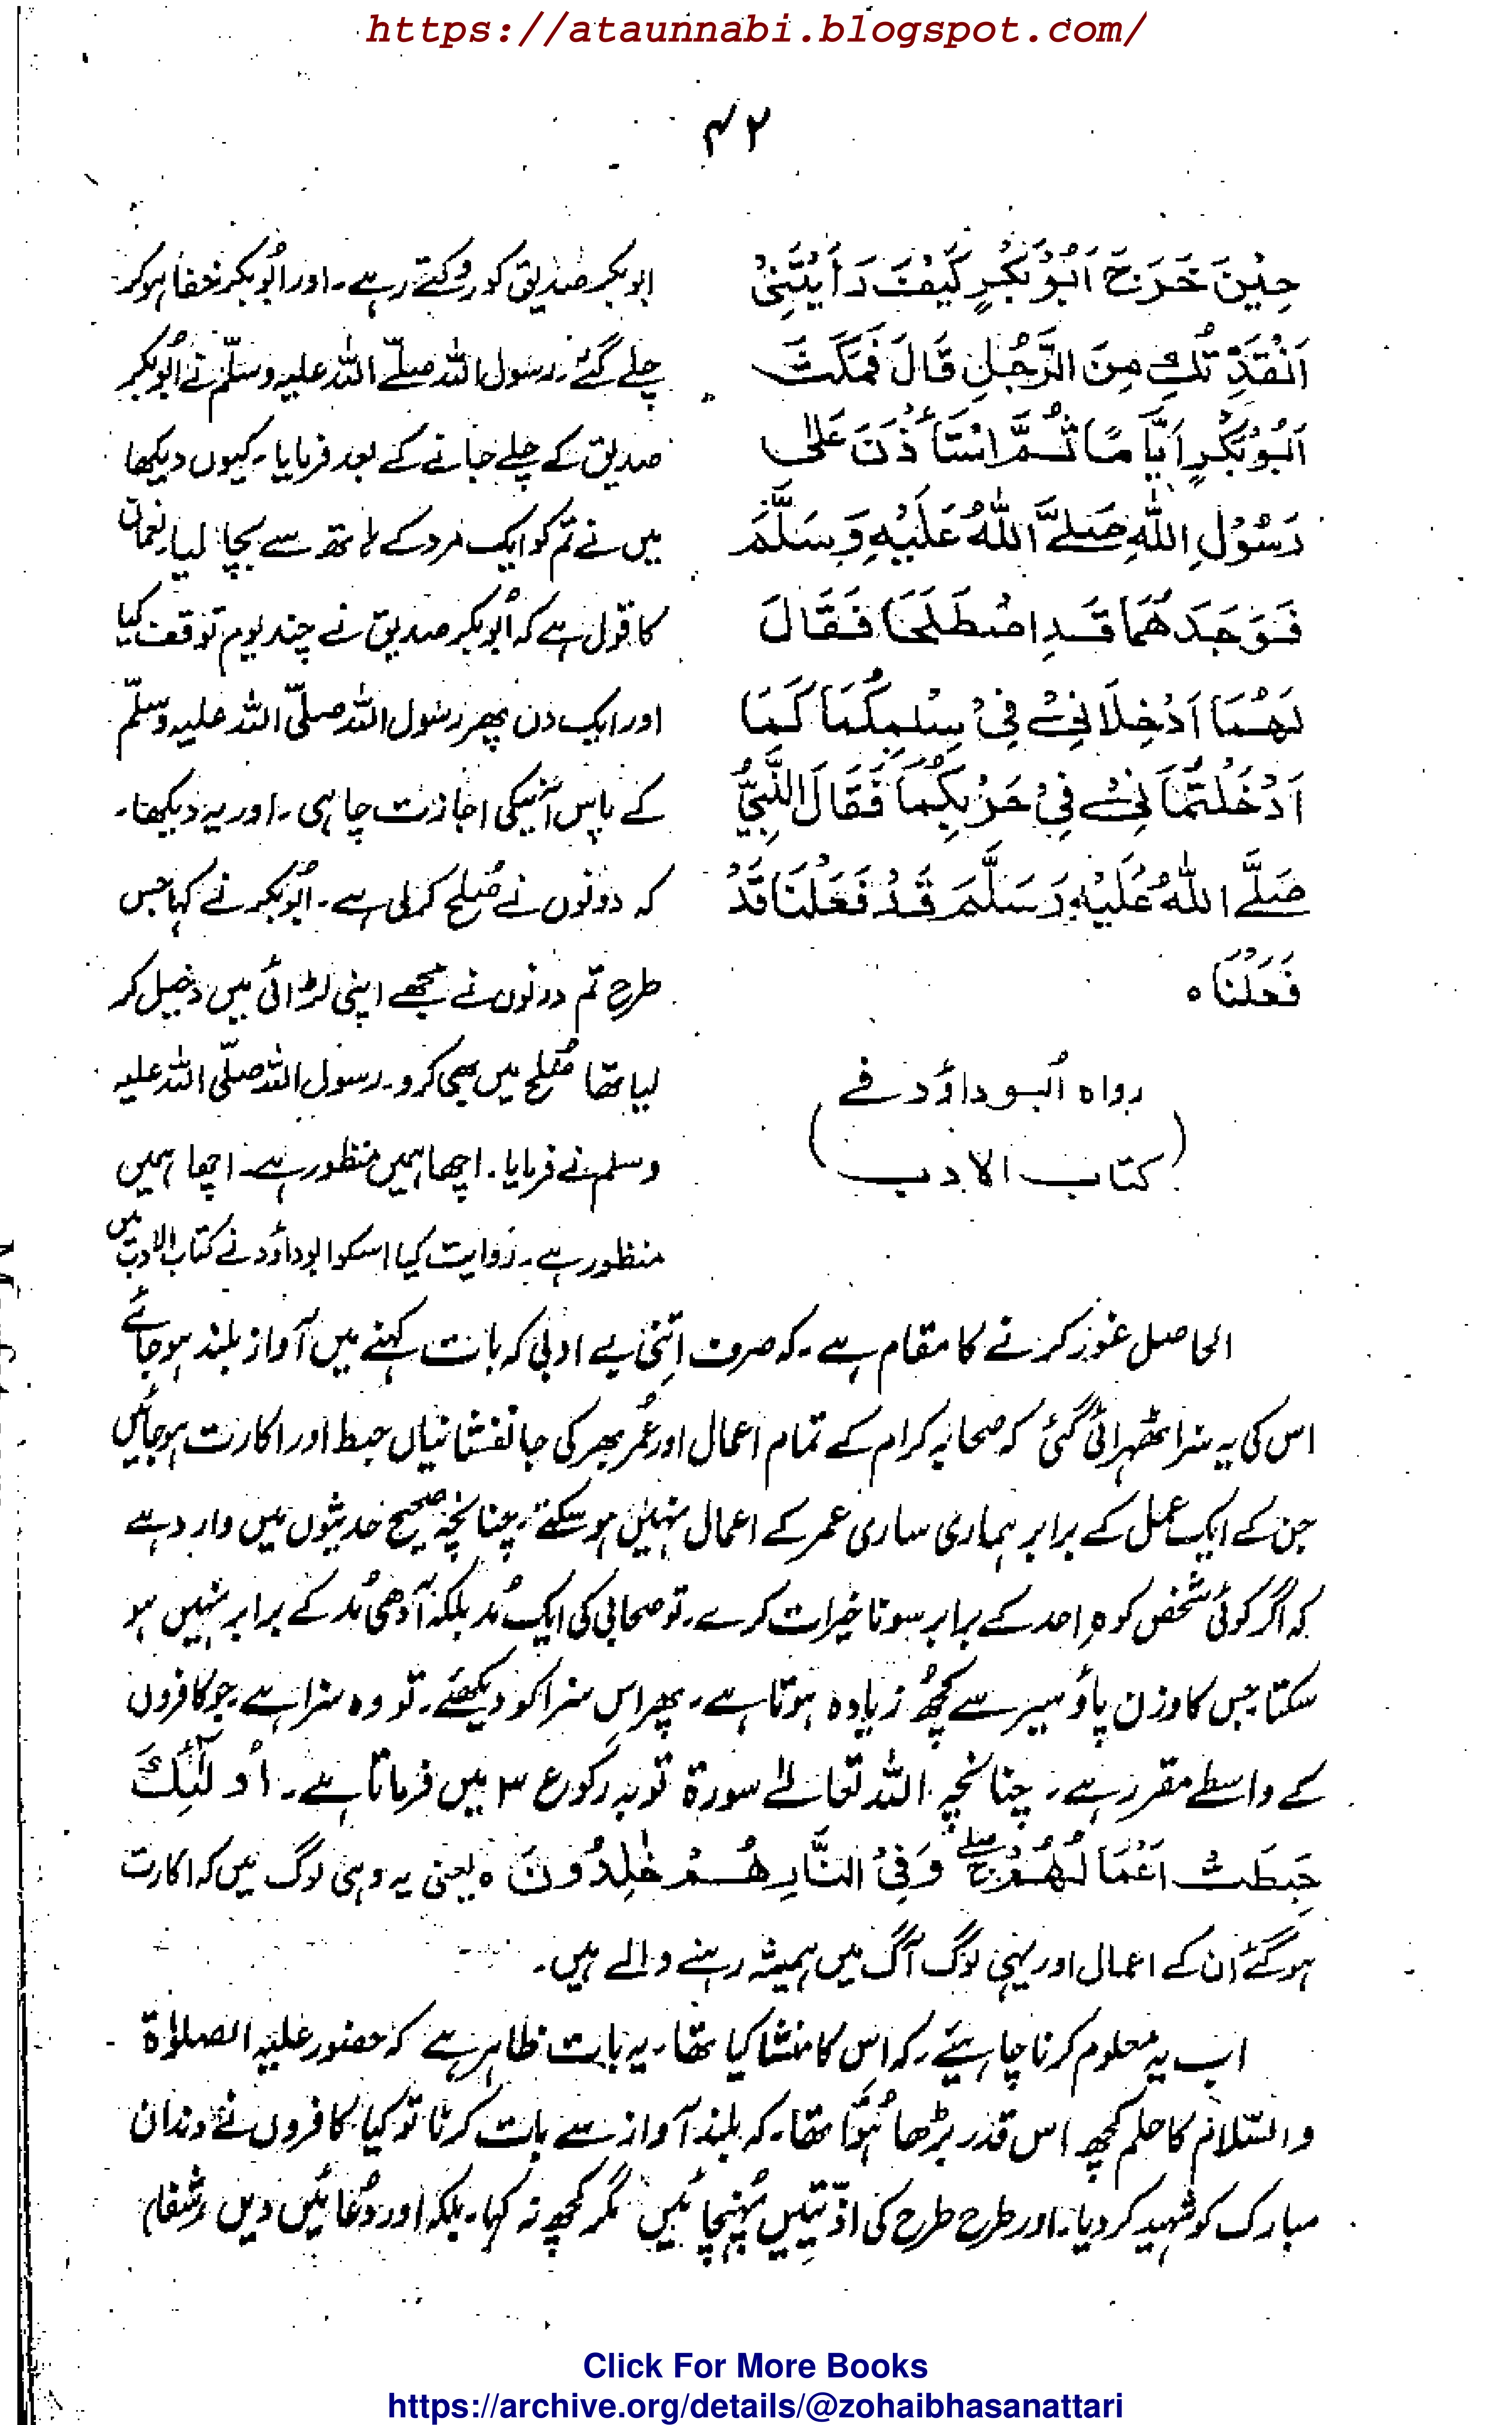 https://ataunnabi.blogspot.com/
۴۲
حِیْنَ خَرَجَ اَبُوْبَکْرٍ کَیْفَ رَاَیْتَنِیْ
اَنْقَذْتُكِ مِنَ الرَّجُلِ قَالَ فَمَکَثَ
اَبُوْبَکْرٍ اَیَّامًا ثُمَّ اسْتَأْذَنَ عَلٰی
رَسُوْلِ اللّٰهِ صَلَّے اللّٰهُ عَلَیْهِ وَسَلَّمَ
فَوَجَدَهُمَا قَدِ اصْطَلَحَا فَقَالَ
لَهُمَا اَدْخِلَانِیْ فِیْ سِلْمِکُمَا کَمَا
اَدْخَلْتُمَانِیْ فِیْ حَرْبِکُمَا فَقَالَ النَّبِیُّ
صَلَّے اللّٰهُ عَلَیْهِ وَسَلَّمَ قَدْ فَعَلْنَا قَدْ
فَعَلْنَا ہ
رواہ اَبو داؤد فے
(کتاب الادب)
ابوبکر صدیق کو روکتے رہے۔ اور اَبُوبکر خفا ہوکر
چلے گئے۔ رسول اللہ صلّے اللہ علیہ وسلّم نے اَبُوبکر
صدیق کے چلے جانے کے بعد فرمایا۔ کیوں دیکھا
میں نے تم کو ایک مرد کے ہاتھ سے بچا لیا۔ نعمان
کا قول ہے کہ اَبُوبکر صدیق نے چند یوم توقف کیا
اور ایک دن پھر رسول اللہ صلّی اللہ علیہ وسلّم
کے پاس آنیکی اجازت چاہی۔ اور یہ دیکھا۔
کہ دونوں نے صُلح کرلی ہے۔ اَبُوبکر نے کہا جس
طرح تم دونوں نے مجھے اپنی لڑائی میں دخیل کر
لیا تھا صُلح میں بھی کرو۔ رسول اللہ صلّی اللہ علیہ
وسلم نے فرمایا۔ اچھا ہمیں منظور ہے۔ اچھا ہمیں
منظور ہے۔ روایت کیا اسکو ابوداؤد نے کتاب الادب میں
الحاصل غور کرنے کا مقام ہے۔ کہ صرف اِتنی بے ادبی کہ بات کہنے میں آواز بلند ہوجائے
اس کی یہ سزا ٹھہرائی گئی کہ صحابہ کرام کے تمام اعمال اور عُمر بھر کی جانفشانیاں حبط اور اکارت ہوجائیں
جن کے ایک عمل کے برابر ہماری ساری عمر کے اعمال نہیں ہوسکتے۔ چنانچہ صحیح حدیثوں میں وارد ہے
کہ اگر کوئی شخص کوہِ احد کے برابر سونا خیرات کرے۔ تو صحابی کی ایک مُد بلکہ آدھی مُد کے برابر نہیں ہو
سکتا جس کا وزن پاؤ سیر سے کچھُ زیادہ ہوتا ہے۔ پھر اس سزا کو دیکھئے۔ تو وہ سزا ہے۔ جو کافروں
کے واسطے مقرر ہے۔ چنانچہ اللہ تعالےٰ سورۃ توبہ رکوع ۳ میں فرماتا ہے۔ اُولٰٓئِكَ
حَبِطَتْ اَعْمَالُهُمْ ۚۖ وَفِی النَّارِ هُمْ خٰلِدُوْنَ ہ یعنی یہ وہی لوگ ہیں کہ اکارت
ہوگئے اُن کے اعمال اور یہی لوگ آگ میں ہمیشہ رہنے والے ہیں۔
اب یہ معلوم کرنا چاہیئے۔ کہ اس کا منشا کیا تھا۔ یہ بات ظاہر ہے کہ حضور علیہ الصلوٰۃ
والسّلام کا حلم کچھ اس قدر بڑھا ہُوا تھا۔ کہ بلند آواز سے بات کرنا تو کیا کافروں نے دندان
مبارک کو شہید کردیا۔ اور طرح طرح کی اذّیتیں پُہنچائیں مگر کچھ نہ کہا۔ بلکہ اور دُعائیں دیں
Click For More Books
https://archive.org/details/@zohaibhasanattari